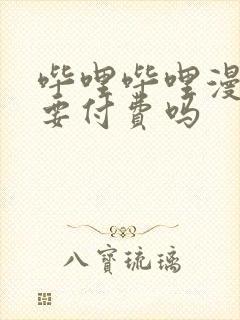 哔哩哔哩漫
要付费吗
八寶琉璃